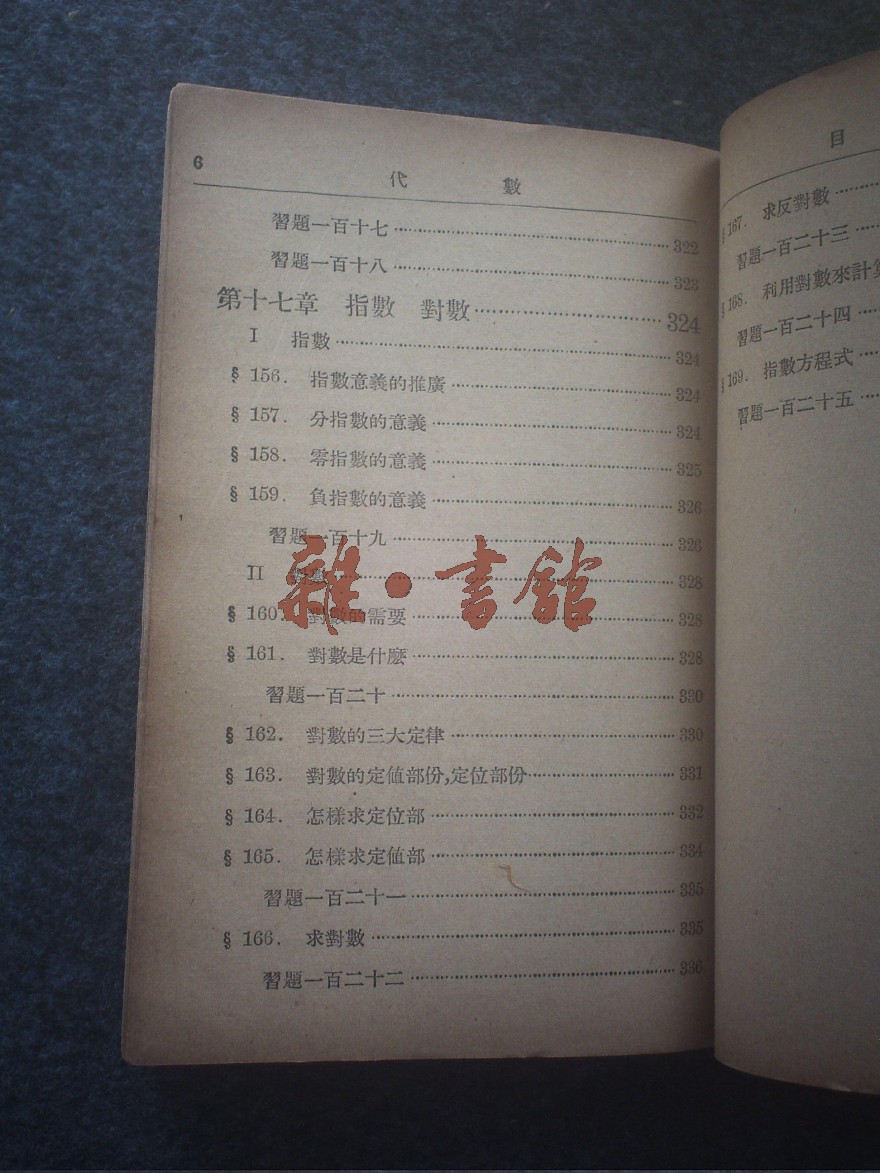 6
代 數
習題一百十七 322
習題一百十八 323
第十七章 指數 對數 324
I 指數 324
§ 156. 指數意義的推廣 324
§ 157. 分指數的意義 324
§ 158. 零指數的意義 325
§ 159. 負指數的意義 326
習題一百十九 326
II 對數 328
§ 160. 對數的需要 328
§ 161. 對數是什麽 328
習題一百二十 330
§ 162. 對數的三大定律 330
§ 163. 對數的定値部份,定位部份 331
§ 164. 怎樣求定位部 332
§ 165. 怎樣求定値部 334
習題一百二十一 335
§ 166. 求對數 335
習題一百二十二 336
雜·書館
目
§ 167. 求反對數
習題一百二十三
§ 168. 利用對數來計算
習題一百二十四
§ 169. 指數方程式
習題一百二十五